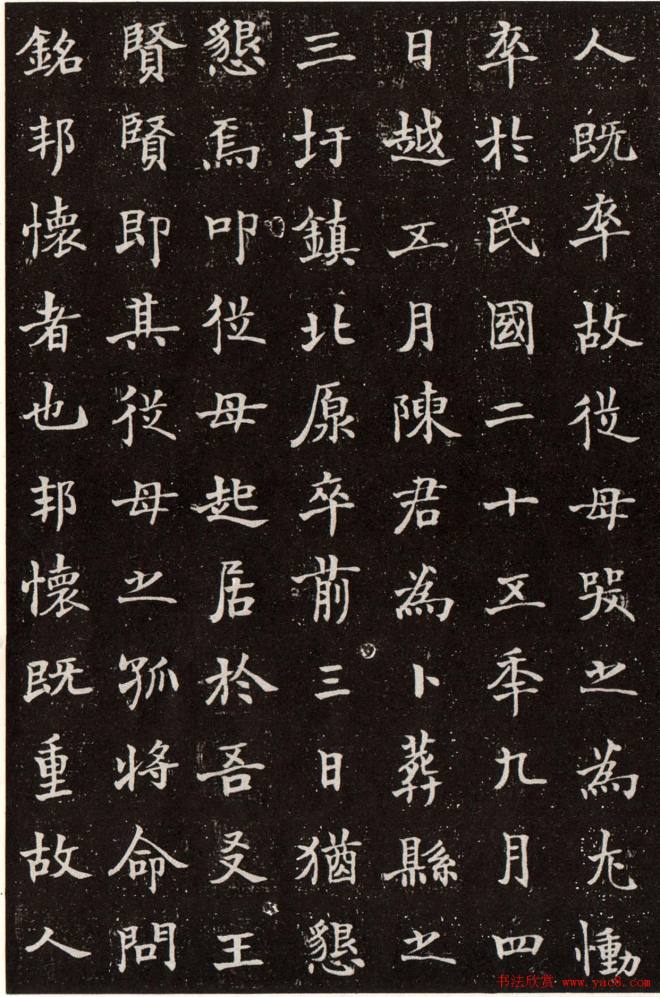 人既卒故從母哭之為尤慟
卒於民國二十五年九月四
日越五月陳君為卜葬縣之
三圩鎮北原卒前三日猶懇
懇焉叩從母起居於吾友王
賢賢即其從母之孤將命問
銘邦懷者也邦懷既重故人
书法欣赏 www.yac8.com